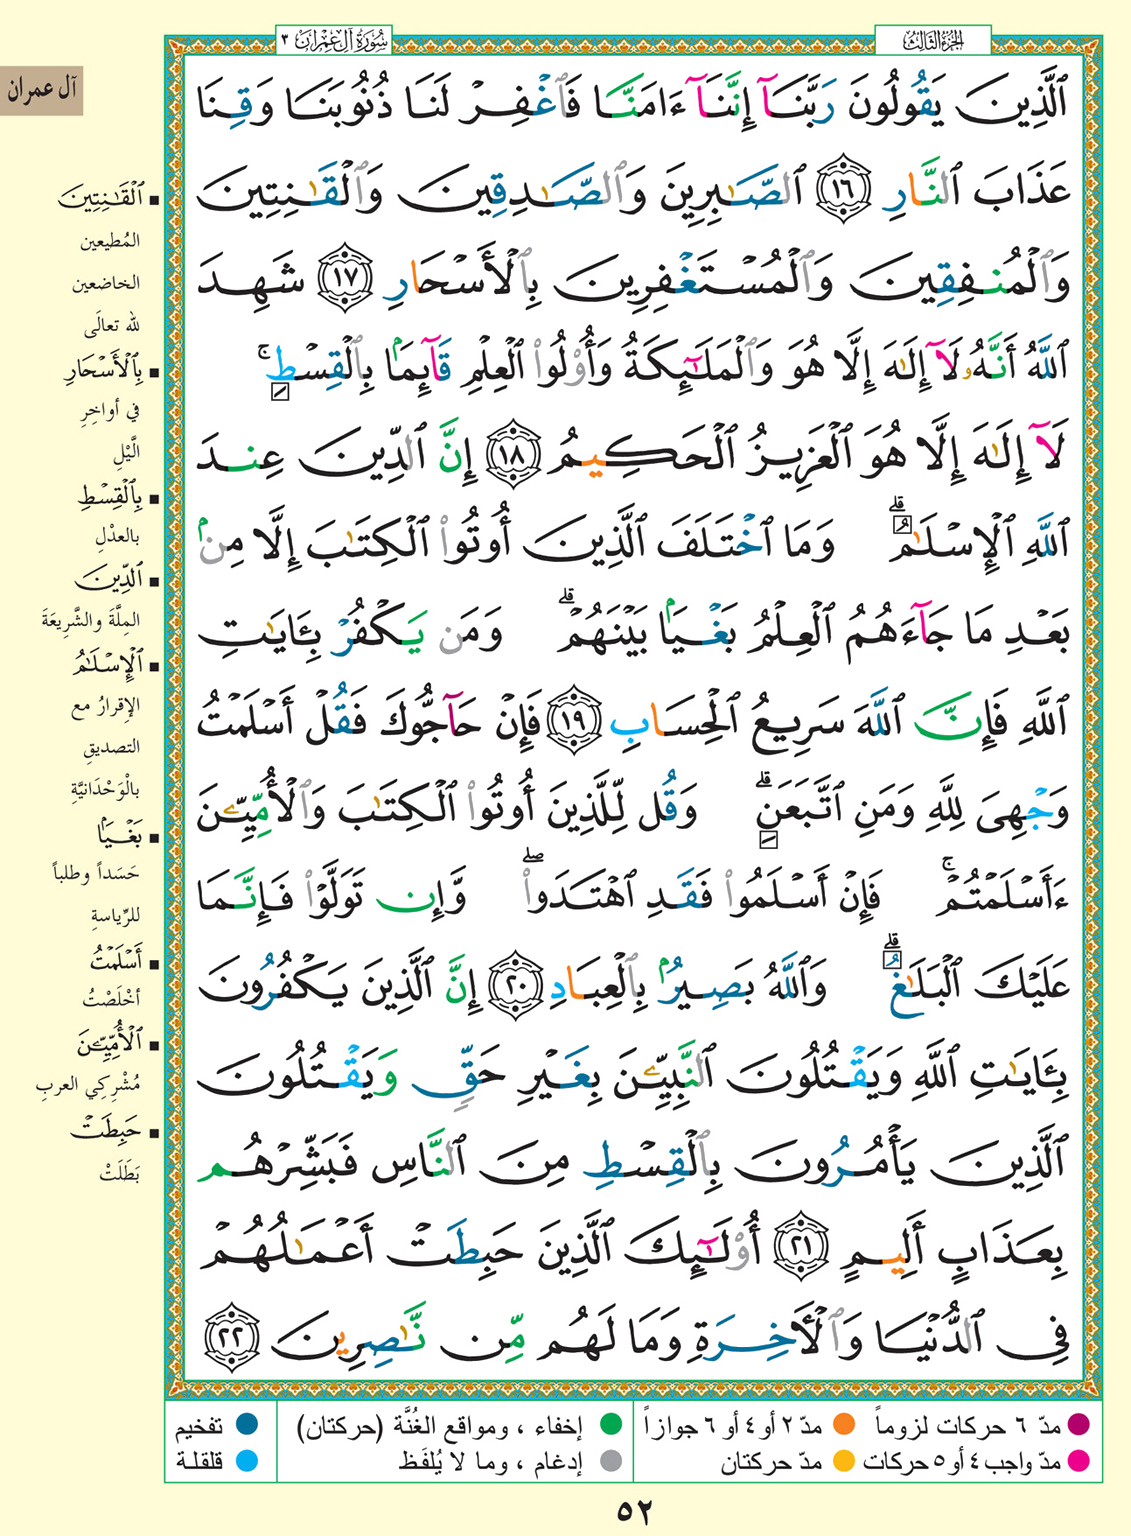 الجزء الثالث
سورة آل عمران ٣
آل عمران
ٱلَّذِينَ يَقُولُونَ رَبَّنَآ إِنَّنَآ ءَامَنَّا فَٱغْفِرْ لَنَا ذُنُوبَنَا وَقِنَا
عَذَابَ ٱلنَّارِ ١٦ ٱلصَّٰبِرِينَ وَٱلصَّٰدِقِينَ وَٱلْقَٰنِتِينَ
وَٱلْمُنفِقِينَ وَٱلْمُسْتَغْفِرِينَ بِٱلْأَسْحَارِ ١٧ شَهِدَ
ٱللَّهُ أَنَّهُۥ لَآ إِلَٰهَ إِلَّا هُوَ وَٱلْمَلَٰٓئِكَةُ وَأُو۟لُوا۟ ٱلْعِلْمِ قَآئِمًۢا بِٱلْقِسْطِ ۚ
لَآ إِلَٰهَ إِلَّا هُوَ ٱلْعَزِيزُ ٱلْحَكِيمُ ١٨ إِنَّ ٱلدِّينَ عِندَ
ٱللَّهِ ٱلْإِسْلَٰمُ ۗ وَمَا ٱخْتَلَفَ ٱلَّذِينَ أُوتُوا۟ ٱلْكِتَٰبَ إِلَّا مِنۢ
بَعْدِ مَا جَآءَهُمُ ٱلْعِلْمُ بَغْيًۢا بَيْنَهُمْ ۗ وَمَن يَكْفُرْ بِـَٔايَٰتِ
ٱللَّهِ فَإِنَّ ٱللَّهَ سَرِيعُ ٱلْحِسَابِ ١٩ فَإِنْ حَآجُّوكَ فَقُلْ أَسْلَمْتُ
وَجْهِىَ لِلَّهِ وَمَنِ ٱتَّبَعَنِ ۗ وَقُل لِّلَّذِينَ أُوتُوا۟ ٱلْكِتَٰبَ وَٱلْأُمِّيِّۦنَ
ءَأَسْلَمْتُمْ ۚ فَإِنْ أَسْلَمُوا۟ فَقَدِ ٱهْتَدَوا۟ ۖ وَّإِن تَوَلَّوْا۟ فَإِنَّمَا
عَلَيْكَ ٱلْبَلَٰغُ ۗ وَٱللَّهُ بَصِيرٌۢ بِٱلْعِبَادِ ٢٠ إِنَّ ٱلَّذِينَ يَكْفُرُونَ
بِـَٔايَٰتِ ٱللَّهِ وَيَقْتُلُونَ ٱلنَّبِيِّۦنَ بِغَيْرِ حَقٍّ وَيَقْتُلُونَ
ٱلَّذِينَ يَأْمُرُونَ بِٱلْقِسْطِ مِنَ ٱلنَّاسِ فَبَشِّرْهُم
بِعَذَابٍ أَلِيمٍ ٢١ أُو۟لَٰٓئِكَ ٱلَّذِينَ حَبِطَتْ أَعْمَٰلُهُمْ
فِى ٱلدُّنْيَا وَٱلْأَخِرَةِ وَمَا لَهُم مِّن نَّٰصِرِينَ ٢٢
■ ٱلْقَٰنِتِينَ
المُطيعين
الخاضعين
لله تعالَى
■ بِٱلْأَسْحَارِ
في أواخِرِ
الَّيْلِ
■ بِٱلْقِسْطِ
بالعدْلِ
■ ٱلدِّينَ
المِلَّةَ والشَّرِيعَةَ
■ ٱلْإِسْلَٰمُ
الإقرارُ مع
التصديقِ
بالْوَحْدَانيَّةِ
■ بَغْيًۢا
حَسَداً وطلباً
للرِّياسةِ
■ أَسْلَمْتُ
أخْلَصْتُ
■ ٱلْأُمِّيِّۦنَ
مُشْرِكي العربِ
■ حَبِطَتْ
بَطَلَتْ
مدّ ٦ حركات لزوماً مدّ ٢ أو ٤ أو ٦ جوازاً إخفاء ، ومواقع الغُنَّة (حركتان) تفخيم
مدّ واجب ٤ أو ٥ حركات مدّ حركتان إدغام ، وما لا يُلفَظ قلقلة
٥٢